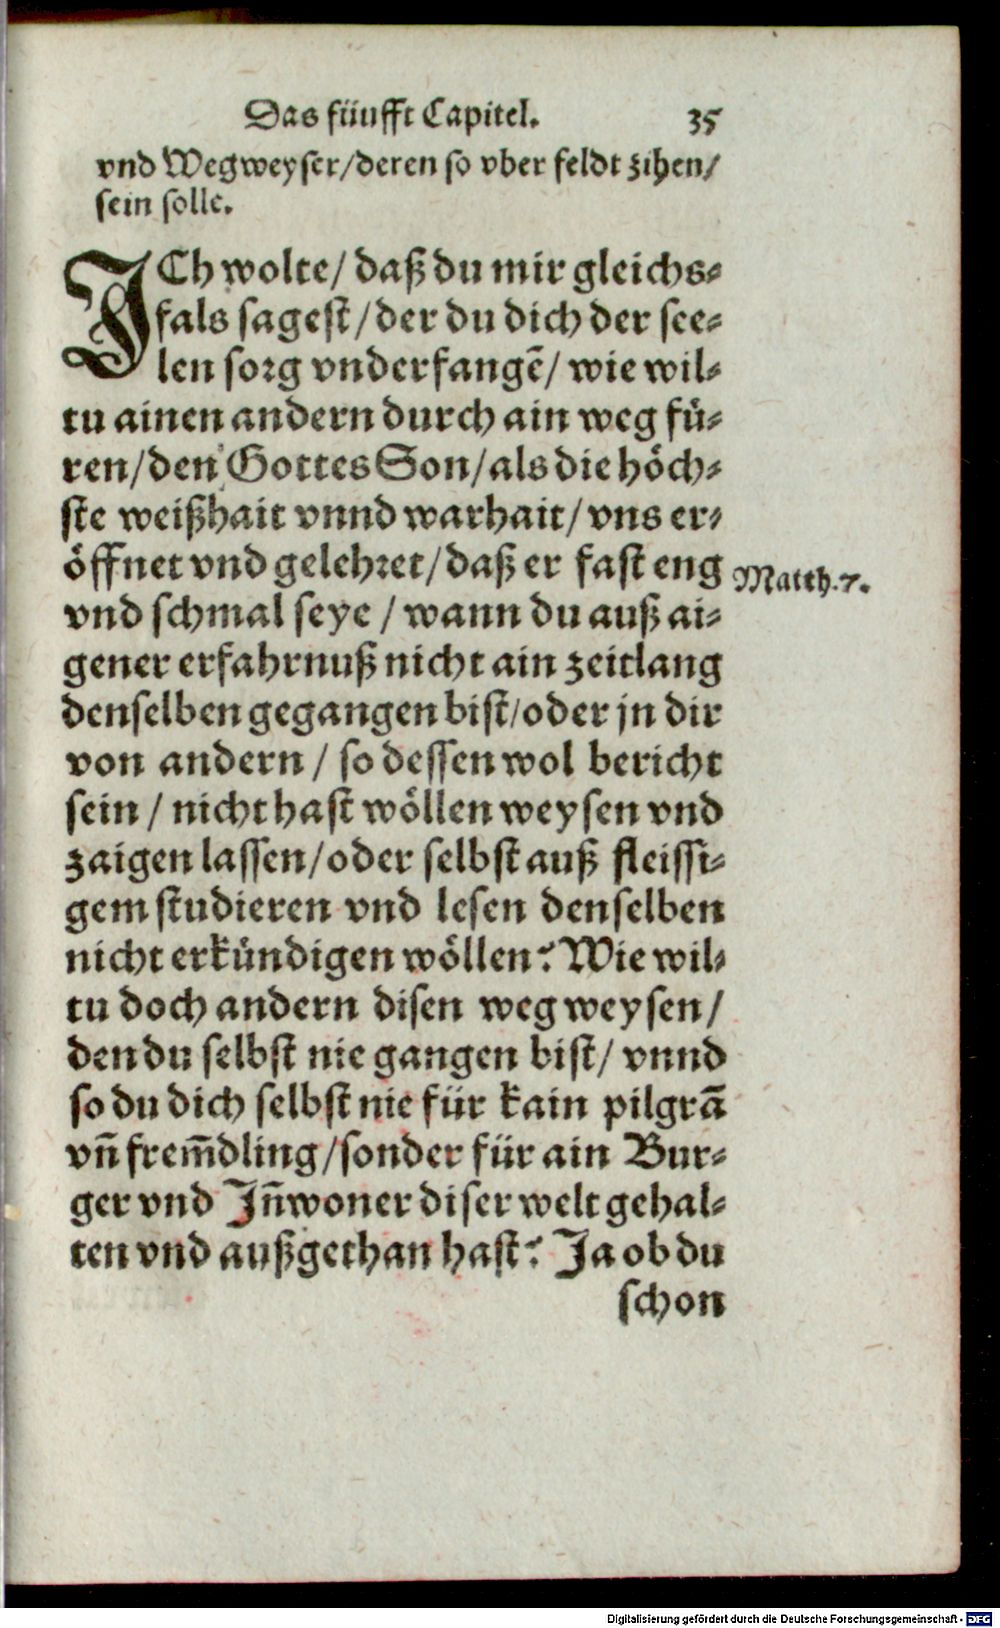 Das fünfft Capitel. 35
vnd Wegweyser/deren so vber feldt zihen/
sein solle.
ICh wolte/ daß du mir gleichs⸗
fals sagest/der du dich der see⸗
len sorg vnderfangẽ/ wie wil⸗
tu ainen andern durch ain weg fü⸗
ren/den Gottes Son/als die höch⸗
ste weißhait vnnd warhait/vns er⸗
öffnet vnd gelehret/daß er fast eng
Matth.7.
vnd schmal seye / wann du auß ai⸗
gener erfahrnuß nicht ain zeitlang
denselben gegangen bist/oder jn dir
von andern / so dessen wol bericht
sein / nicht hast wöllen weysen vnd
zaigen lassen/oder selbst auß fleissi⸗
gem studieren vnd lesen denselben
nicht erkündigen wöllen? Wie wil⸗
tu doch andern disen weg weysen/
den du selbst nie gangen bist/ vnnd
so du dich selbst nie für kain pilgrã
vñ frem̃dling/sonder für ain Bur⸗
ger vnd Jñwoner diser welt gehal⸗
ten vnd außgethan hast? Ja ob du
schon
Digitalisierung gefördert durch die Deutsche Forschungsgemeinschaft - DFG